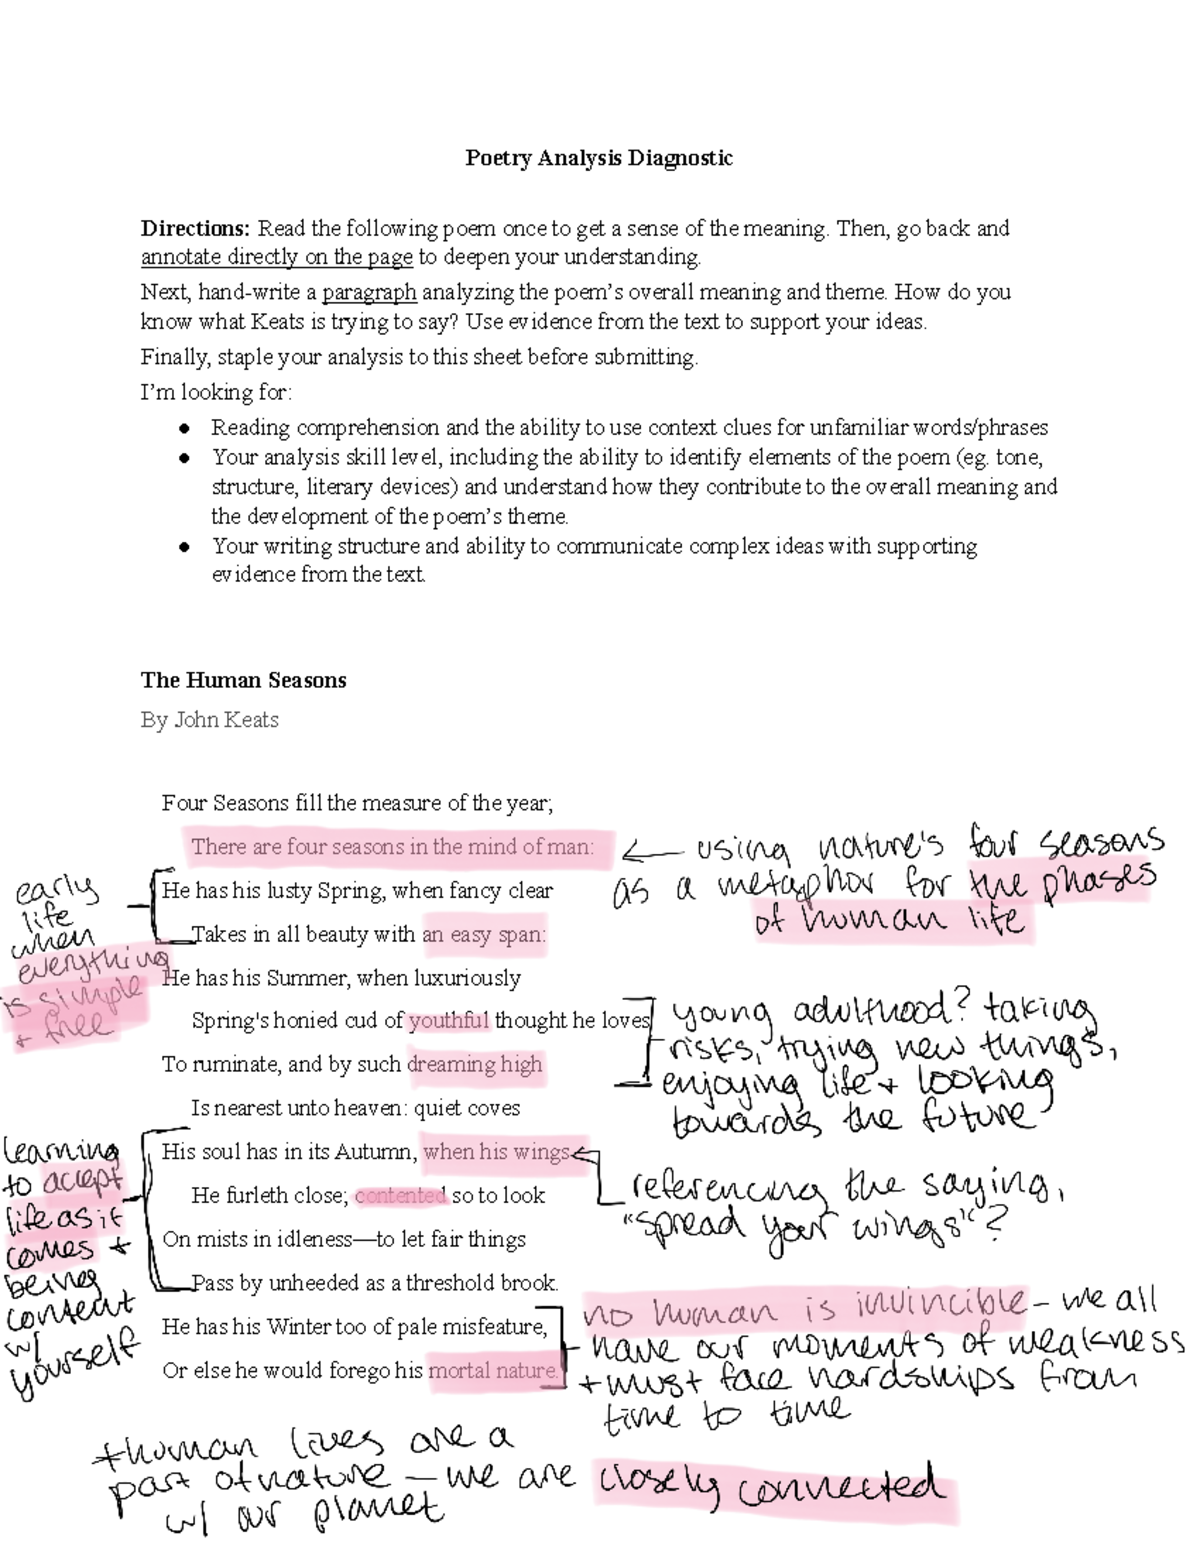 Poetry Analysis Diagnostic
Directions: Read the following poem once to get a sense of the meaning. Then, go back and
annotate directly on the page to deepen your understanding.
Next, hand-write a paragraph analyzing the poem's overall meaning and theme. How do you
know what Keats is trying to say? Use evidence from the text to support your ideas.
Finally, staple your analysis to this sheet before submitting.
I'm looking for:
● Reading comprehension and the ability to use context clues for unfamiliar words/phrases
● Your analysis skill level, including the ability to identify elements of the poem (eg. tone,
structure, literary devices) and understand how they contribute to the overall meaning and
the development of the poem's theme.
● Your writing structure and ability to communicate complex ideas with supporting
evidence from the text.
The Human Seasons
By John Keats
Four Seasons fill the measure of the year;
There are four seasons in the mind of man:
He has his lusty Spring, when fancy clear
Takes in all beauty with an easy span:
He has his Summer, when luxuriously
Spring's honied cud of youthful thought he loves
To ruminate, and by such dreaming high
Is nearest unto heaven: quiet coves
His soul has in its Autumn, when his wings
He furleth close; contented so to look
On mists in idleness—to let fair things
Pass by unheeded as a threshold brook.
He has his Winter too of pale misfeature,
Or else he would forego his mortal nature.
← using nature's four seasons
as a metaphor for the phases
of human life
early
life
when
everything
is simple
+ free
young adulthood? taking
risks, trying new things,
enjoying life + looking
towards the future
learning
to accept
life as it
comes +
being
content
w/
yourself
referencing the saying,
"spread your wings"?
no human is invincible - we all
have our moments of weakness
+ must face hardships from
time to time
+ human lives are a
part of nature - we are closely connected
w/ our planet